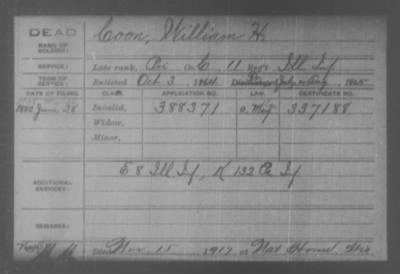 DEAD
NAME OF SOLDIER: Coon, William H.
SERVICE: Late rank, Pri Co. C, 11 Reg't Ill. Inf
TERM OF SERVICE: Enlisted Oct 3, 1864 1865
DATE OF FILING. CLASS. APPLICATION NO. LAW. CERTIFICATE NO.
1880 June 28 Invalid, 388371 337188
Widow,
Minor,
ADDITIONAL SERVICES: 58 Ill Inf, K 132 Inf
REMARKS:
Died Nov 15 1917, at Nat Home, Wis